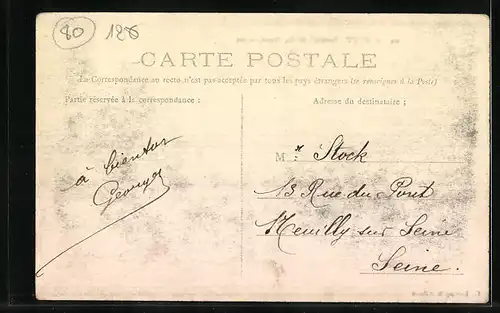 80 128
CARTE POSTALE
La Correspondance au recto n'est pas acceptée par tous les pays étrangers (se renseigner à la Poste)
Partie réservée à la correspondance :
Adresse du destinataire ;
à bientôt
Georges
M. Stock
13 Rue du Pont
Neuilly sur Seine
Seine.